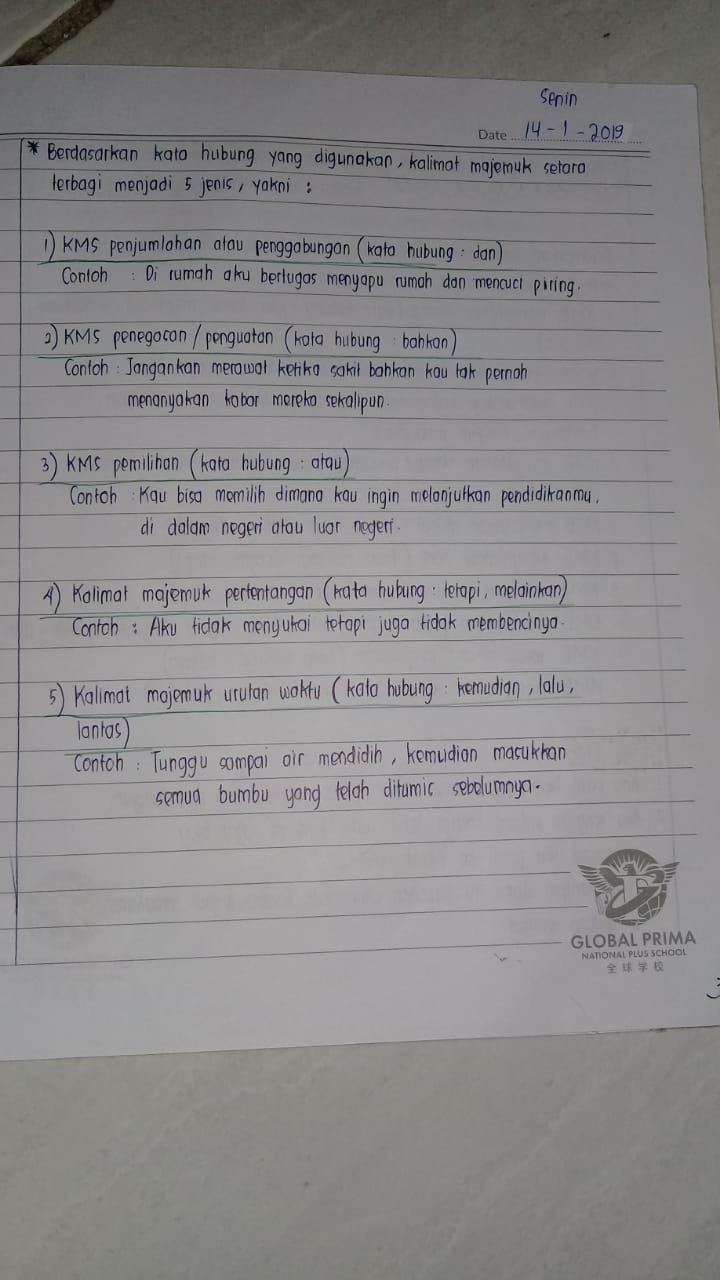 Senin
Date 14 - 1 - 2019
* Berdasarkan kata hubung yang digunakan, kalimat majemuk setara
terbagi menjadi 5 jenis, yakni :
1) KMS penjumlahan atau penggabungan (kata hubung : dan)
Contoh : Di rumah aku bertugas menyapu rumah dan mencuci piring.
2) KMS penegasan / penguatan (kata hubung : bahkan)
Contoh : Jangankan merawat ketika sakit bahkan kau tak pernah
menanyakan kabar mereka sekalipun.
3) KMS pemilihan (kata hubung : atau)
Contoh : Kau bisa memilih dimana kau ingin melanjutkan pendidikanmu,
di dalam negeri atau luar negeri.
4) Kalimat majemuk pertentangan (kata hubung : tetapi, melainkan)
Contoh : Aku tidak menyukai tetapi juga tidak membencinya.
5) Kalimat majemuk urutan waktu (kata hubung : kemudian, lalu,
lantas)
Contoh : Tunggu sampai air mendidih, kemudian masukkan
semua bumbu yang telah ditumic sebelumnya.
GLOBAL PRIMA
NATIONAL PLUS SCHOOL
全球学校